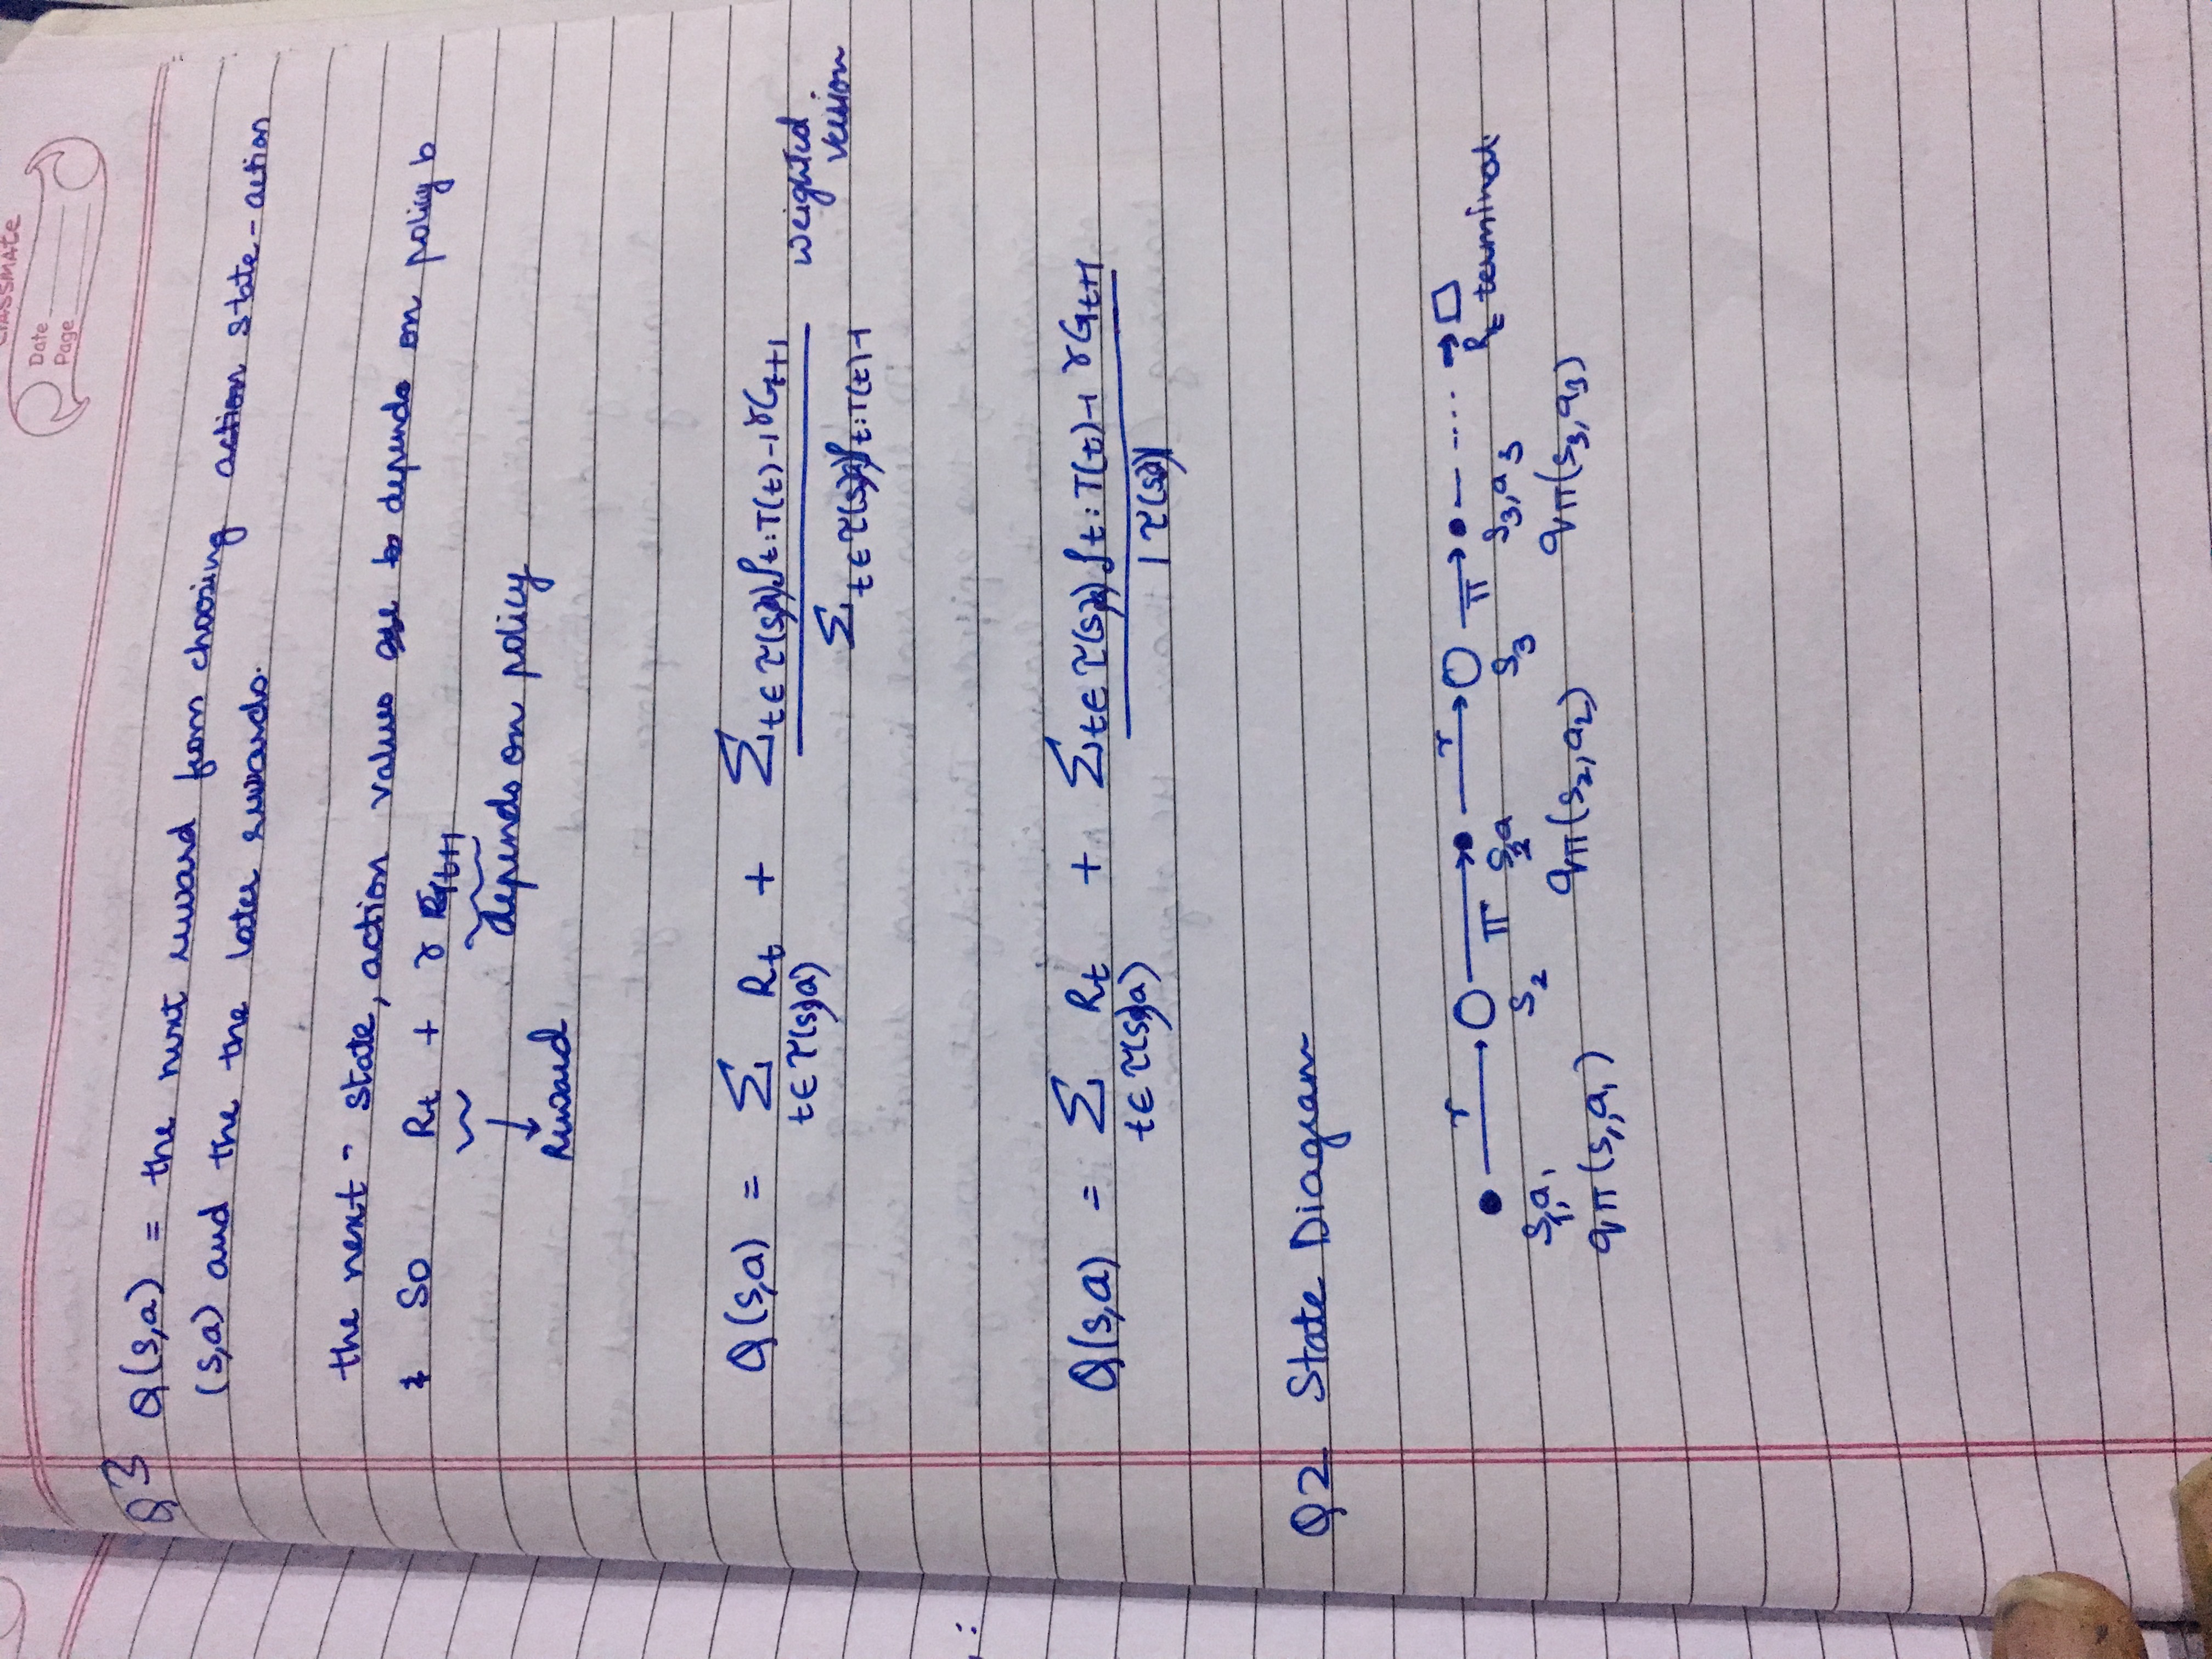 classmate
Date
Page
Q3 Q(s,a) = the next reward from choosing action state-action
(s,a) and the the later rewards.
the next - state, action values depends on policy b
So Rt + γ Gt+1
depends on policy
Reward
Q(s,a) = Σ t∈τ(s,a) Rt + Σ t∈τ(s,a) ρt:T(t)-1 γGt+1 / Σ t∈τ(s,a) ρt:T(t)-1 weighted version
Q(s,a) = Σ t∈τ(s,a) Rt + Σ t∈τ(s,a) ρt:T(t)-1 γGt+1 / |τ(s,a)|
Q2 State Diagram
r r
π π
s1,a1 s2 s2,a s3 s3,a3 Rt terminal
qπ(s1,a1) qπ(s2,a2) qπ(s3,a3)